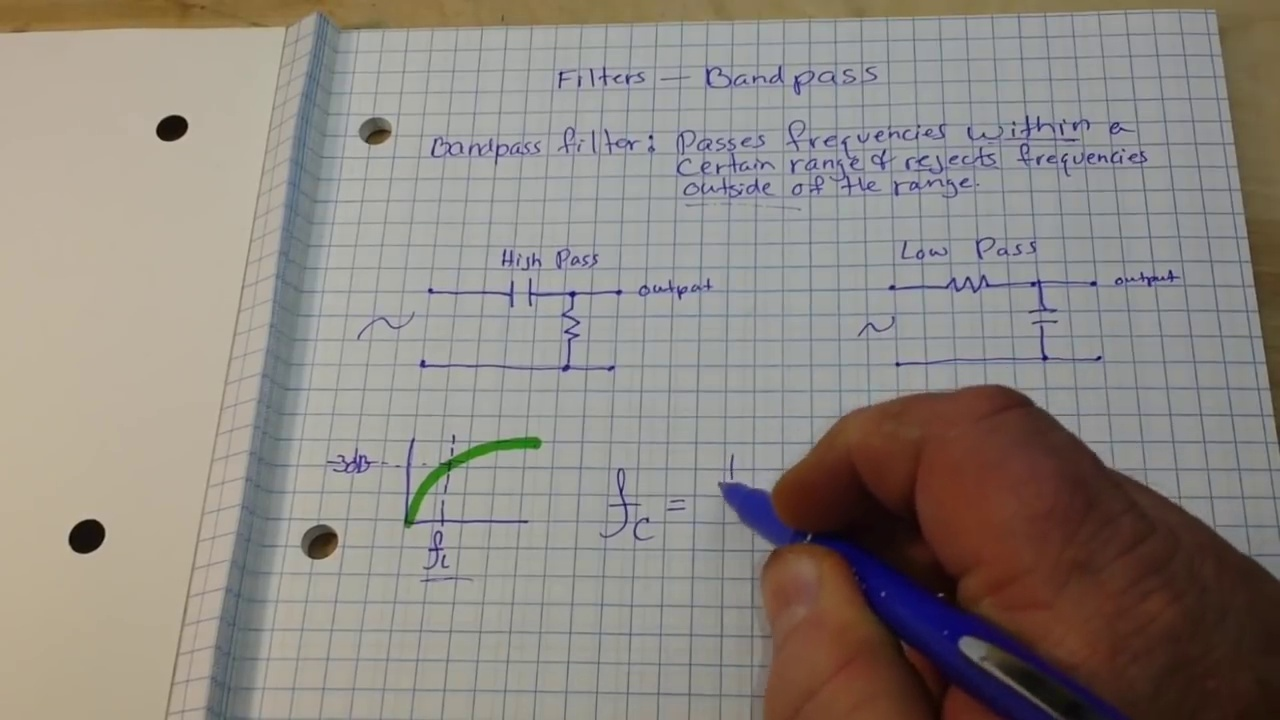 Filters — Bandpass
Bandpass filter: Passes frequencies within a
certain range & rejects frequencies
outside of the range.
High Pass
Low Pass
output
output
-3dB
fc = 1
fc